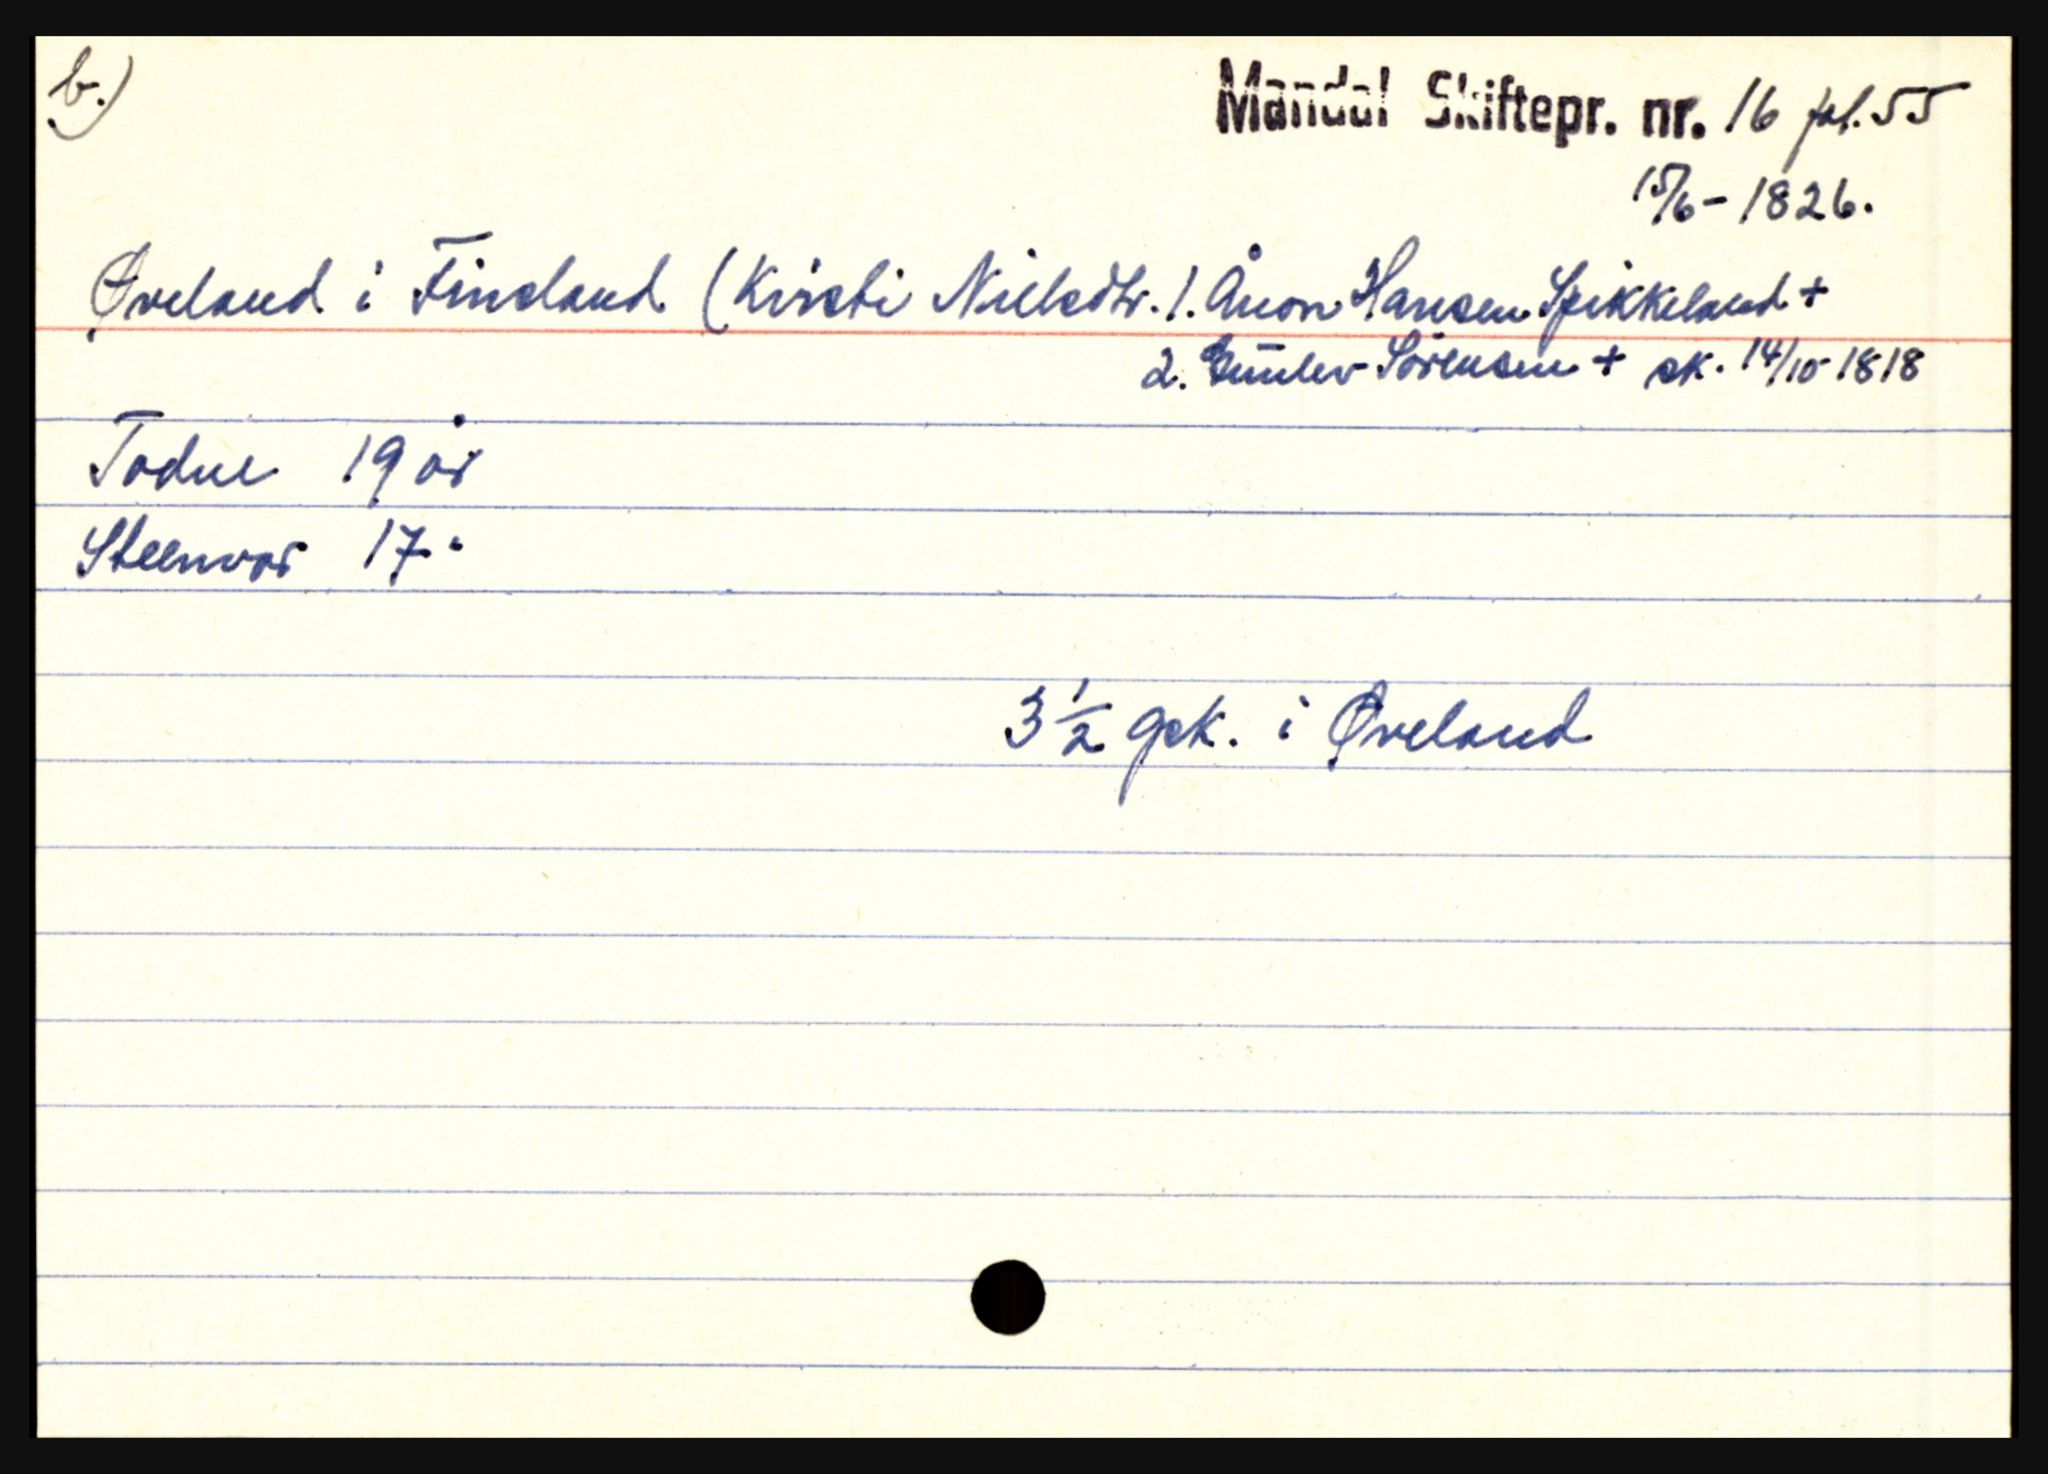 b.)
Mandal Skiftepr. nr. 16 fol. 55
15/6 - 1826.
Øveland i Finsland (Kirsti Nielsdtr. 1. Ånon Hansen Spikkeland +
2. Gunlev Sørensen + sk. 14/10 1818
Todne 19 år
Steenvor 17 "
3 1/2 gsk. i Øveland